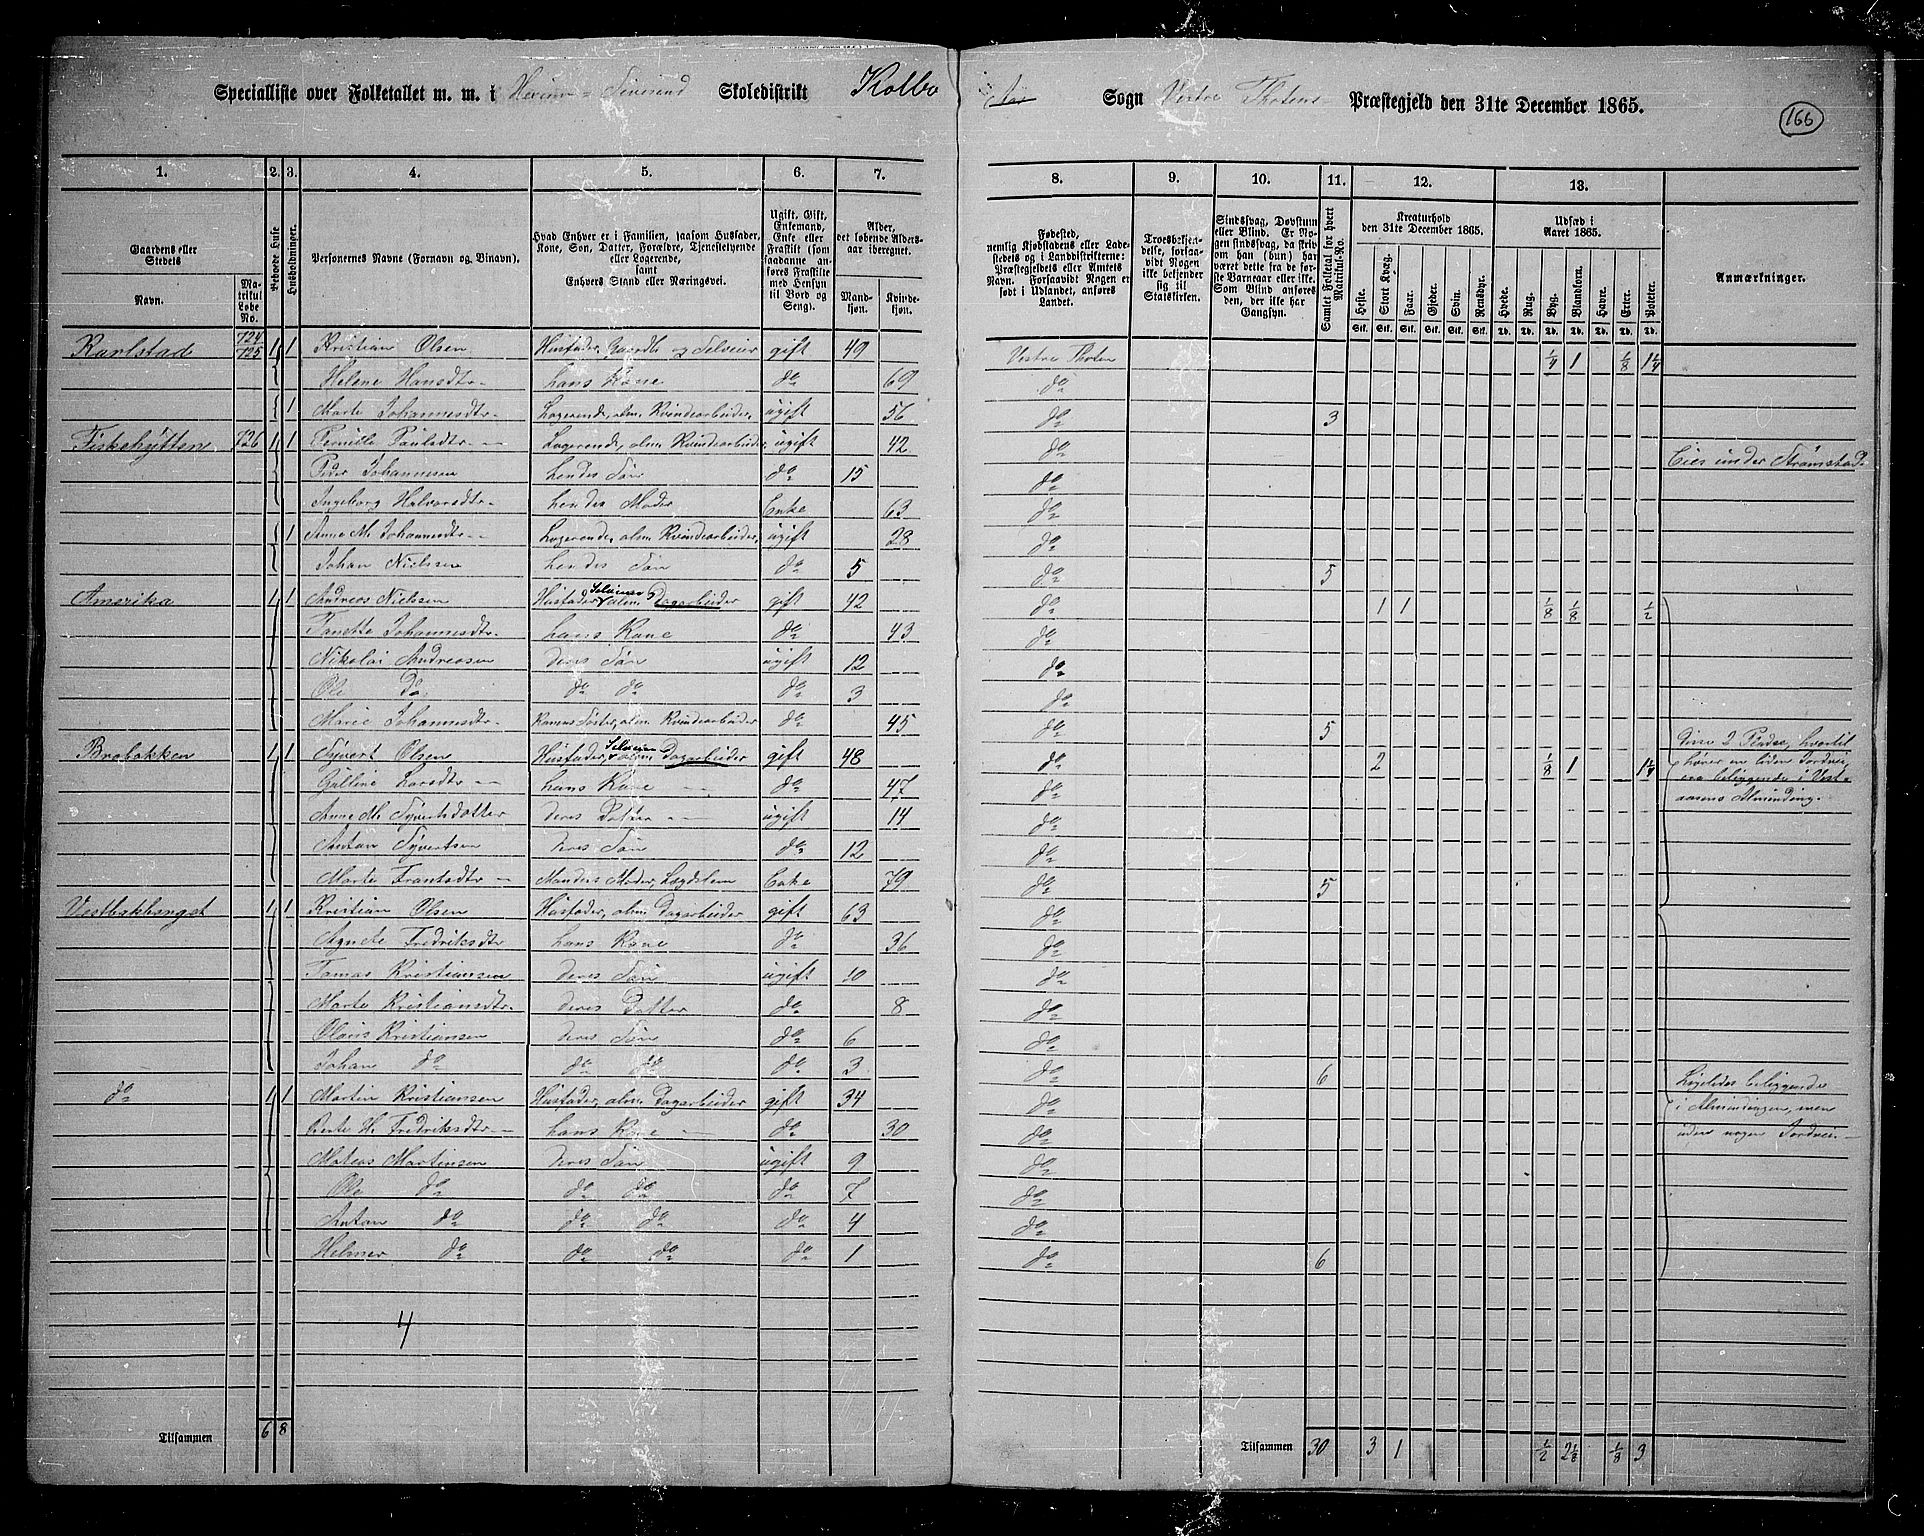 Specialliste over Folketallet m. m. i Skoledistrikt Kolbo Sogn Vestre Thotens Præstegjeld den 31te December 1865.
166
1. 2. 3. 4. 5. 6. 7. 8. 9. 10. 11. 12. 13.
Gaardens eller Stedets Navn. Matrikul Løbe No. Beboede Huse Husholdninger. Personernes Navne (Fornavn og Binavn). Hvad Enhver er i Familien, saasom Husfader, Kone, Søn, Datter, Forældre, Tjenestetyende eller Logerende, samt Enhvers Stand eller Næringsvei. Ugift, Gift, Enkemand, Enke eller Fraskilt (som saadanne anføres Fraskilte med Hensyn til Bord og Seng). Alder, det løbende Aldersaar iberegnet. Mandkjøn. Kvindekjøn.
Fødested, nemlig Kjøbstadens eller Ladestedets eller i Landdistrikterne: Præstegjeldets eller Amtets Navn. Forsaavidt Nogen er født i Udlandet, anføres Landet. Troesbekjendelse, forsaavidt Nogen ikke bekjender sig til Statskirken. Sindssvag, Døvstum eller Blind. Er Nogen sindssvag, da skriv om han (hun) har været dette fra de første Barneaar eller ikke. Som Blind anføres den, der ikke har Gangsyn. Samlet Folketal for hvert Matrikul-No. Kreaturhold den 31te December 1865. Heste. Stort Kvæg. Faar. Gjeder. Svin. Rensdyr. Udsæd i Aaret 1865. Hvede. Rug. Byg. Blandkorn. Havre. Erter. Poteter. Anmærkninger.
Karlstad 724 725 1 1 Kristian Olsen Husfader, Gaardb. og Selveier gift 49 Vestre Thoten 1/4 1 1/8 1 1/4
Helene Hansdtr hans Kone do 69 do
1 Marte Johannesdtr Logerende, alm. Kvindearbeider, ugift 56 do 3
Fiskehytten 726 1 1 Pernille Paulsdtr Logerende, alm. Kvindearbeider, ugift 42 do Eies under Strømstad
Peder Johannesen hendes Søn do 15 do
Ingeborg Halvorsdtr hendes Moder Enke 63 do
1 Anne M. Johannesdtr Logerende, alm. Kvindearbeider, ugift 28 do
Johan Nielssen hendes Søn do 5 do 5
Amerika 1 1 Andreas Nielssen Husfader, Selveier, alm. Dagarbeider gift 42 do 1 1 1/8 1/8 1/2
Johannesdtr hans Kone do 43 do
Nikolai Andreasen deres Søn ugift 12 do
Ole Do do do do 3 do
Marie Johannesdtr Konens Søster, alm. Kvindearbeider do 45 do 5
Brobakken 1 1 Syvert Olsen Husfader, Selveier, alm. Dagarbeider gift 48 do 2 1/8 1 1 1/4 Disse 2 Pladse, hvortil
hører en liden Jordvei,
Larsdtr hans Kone do 47 do ere beliggende i Vest-
aasens Alminding.
Anne M. Syvertsdatter deres Datter ugift 14 do
Antan Syvertsen deres Søn do 12 do
Marte Frantsdtr Mandens Moder, Lægdslem Enke 79 do 5
1 1 Kristian Olsen Husfader, alm. Dagarbeider gift 63 do
Agnete Fredriksdtr hans Kone do 36 do
Tomas Kristiansen deres Søn ugift 10 do
Marte Kristiansdtr deres Datter do 8 do
Olaus Kristiansen deres Søn do 6 do
Johan do do do do 3 do 6 Ligeledes beliggende
do 1 1 Martin Kristiansen Husfader, alm. Dagarbeider gift 34 do i Almindingen, men
Berte H. Fredriksdtr hans Kone do 30 do uden nogen Jordvei
Mateas Martinsen deres Søn ugift 9 do
Ole do do do do 7 do
Antan do do do do 4 do
Helmer do do do do 1 do 6
4
Tilsammen 6 8 Tilsammen 30 3 1 1/2 2 1/8 1/8 3